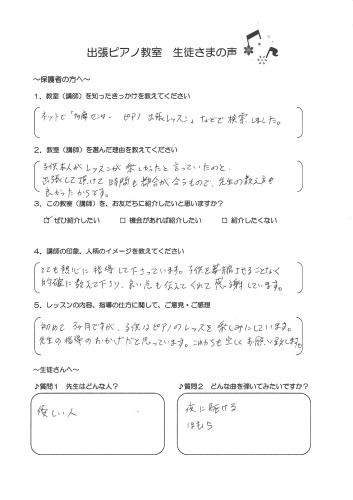 出張ピアノ教室 生徒さまの声
～保護者の方へ～
1．教室（講師）を知ったきっかけを教えてください
ネットで「多摩センター ピアノ 出張レッスン」などで検索しました。
2．教室（講師）を選んだ理由を教えてください
子供本人がレッスンが楽しかったと言っていたのと、
出張して頂けて時間も都合が合うもので、先生の教え方も
良かったからです。
3．この教室（講師）を、お友だちに紹介したいと思いますか？
☑ ぜひ紹介したい □ 機会があれば紹介したい □ 紹介したくない
4．講師の印象、人柄のイメージを教えてください
とても熱心に指導して下さっています。子供を萎縮させることなく
的確に教えて下さり、良い点も伝えてくれて感謝しています。
5．レッスンの内容、指導の仕方に関して、ご意見・ご感想
初めて3ヶ月ですが、子供はピアノのレッスンを楽しみにしています。
先生の指導のおかげだと思っています。これからも宜しくお願い致します。
～生徒さんへ～
♪質問1 先生はどんな人？
優しい人
♪質問2 どんな曲を弾いてみたいですか？
夜に駆ける
ほむら